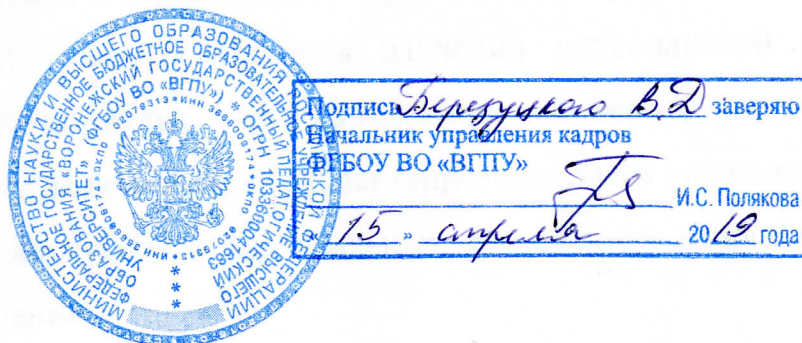 МИНИСТЕРСТВО НАУКИ И ВЫСШЕГО ОБРАЗОВАНИЯ РОССИЙСКОЙ ФЕДЕРАЦИИ
ФЕДЕРАЛЬНОЕ ГОСУДАРСТВЕННОЕ БЮДЖЕТНОЕ ОБРАЗОВАТЕЛЬНОЕ УЧРЕЖДЕНИЕ ВЫСШЕГО
ОБРАЗОВАНИЯ «ВОРОНЕЖСКИЙ ГОСУДАРСТВЕННЫЙ ПЕДАГОГИЧЕСКИЙ
УНИВЕРСИТЕТ» (ФГБОУ ВО «ВГПУ») * ОГРН 1033600041683
Подпись Березуцкого В.Д заверяю
Начальник управления кадров
ФГБОУ ВО «ВГПУ»
И.С. Полякова
« 15 » апреля 2019 года